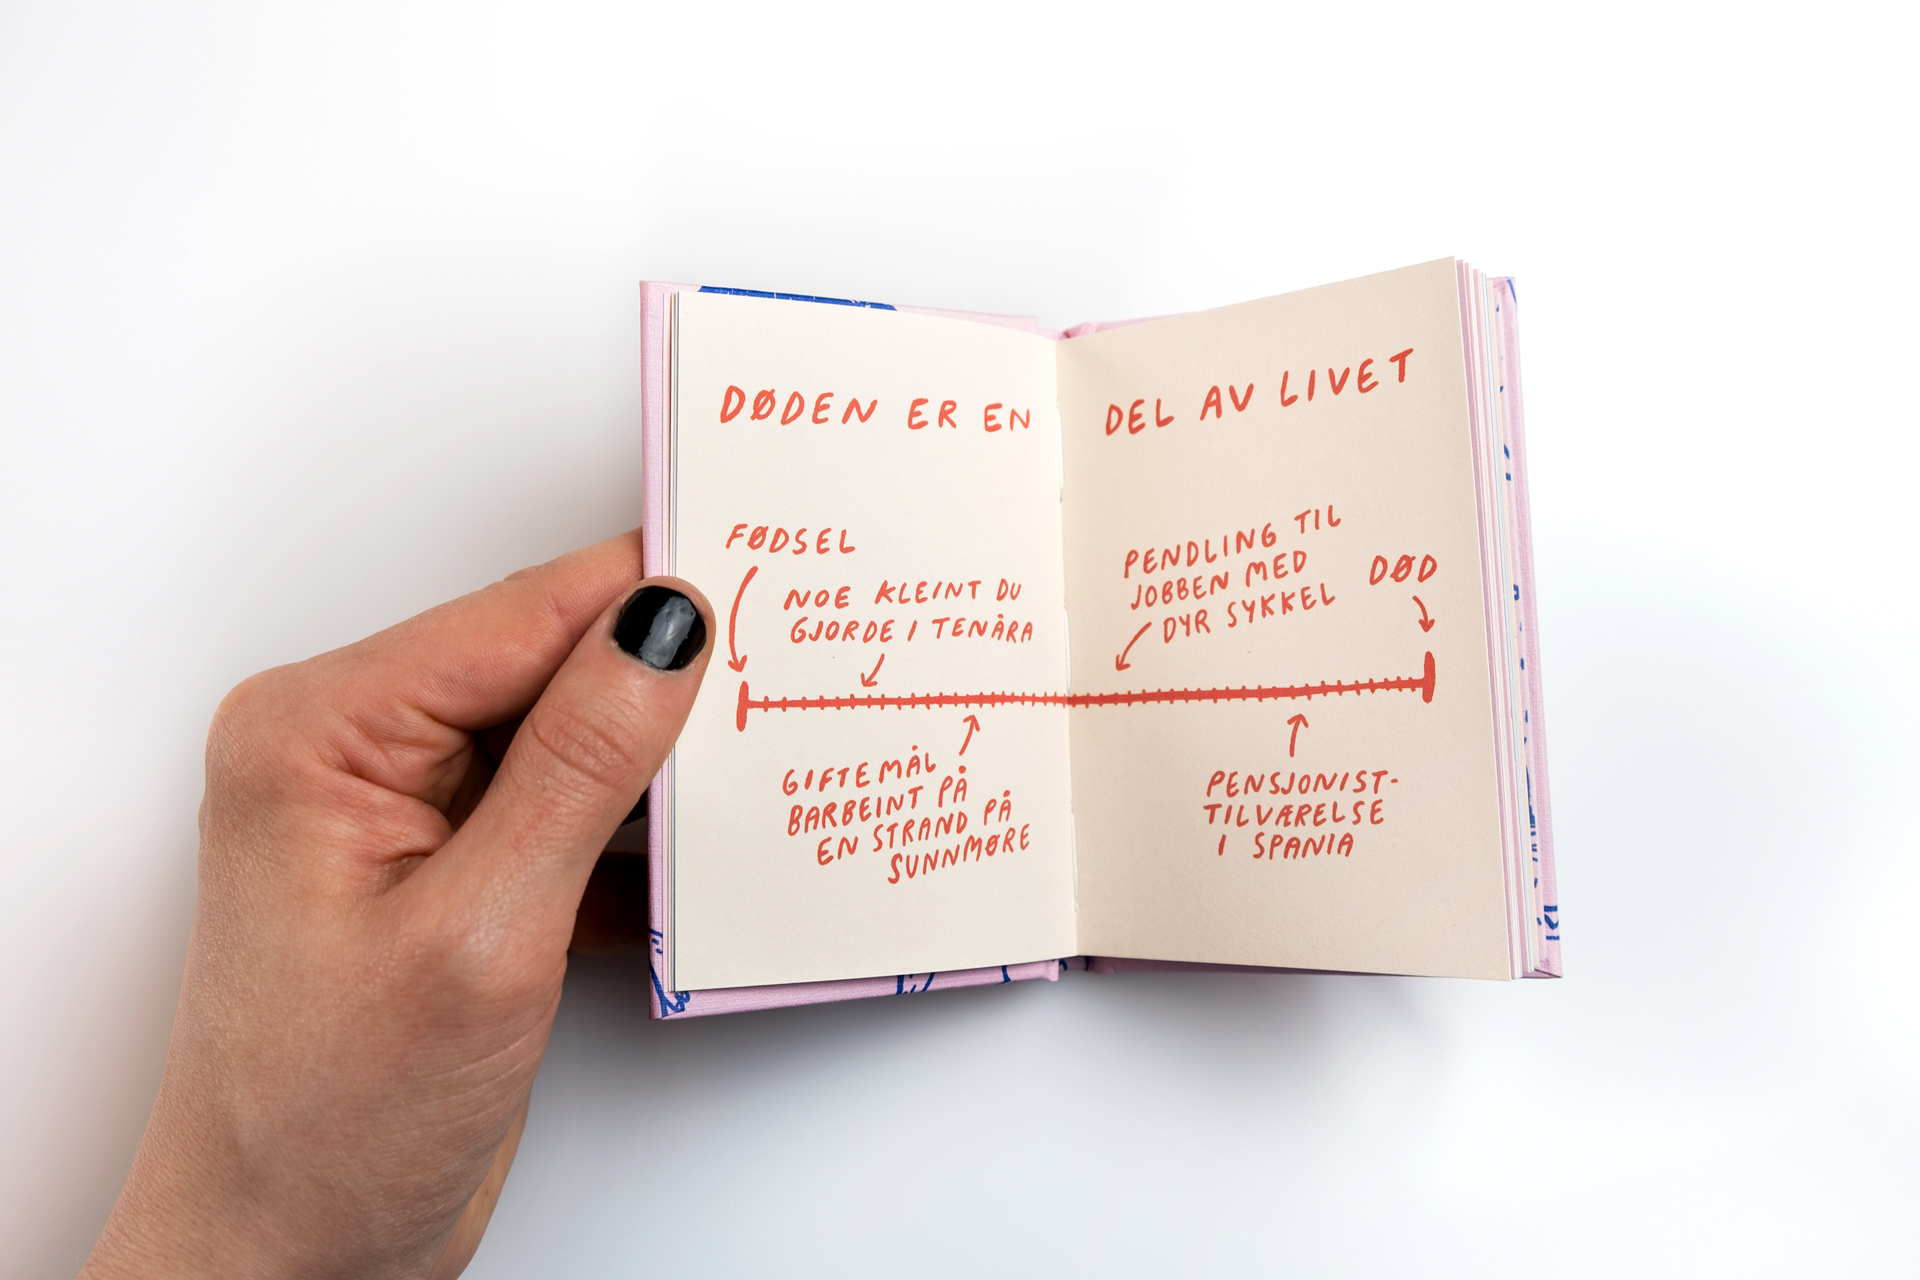 DØDEN ER EN DEL AV LIVET
FØDSEL
NOE KLEINT DU
GJORDE I TENÅRA
GIFTEMÅL
BARBEINT PÅ
EN STRAND PÅ
SUNNMØRE
PENDLING TIL
JOBBEN MED
DYR SYKKEL
DØD
PENSJONIST-
TILVÆRELSE
I SPANIA